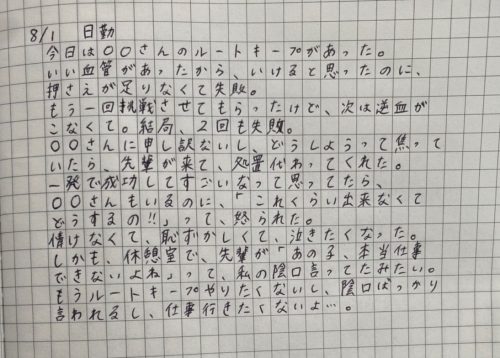 8/1 日勤
今日は〇〇さんのルートキープがあった。
いい血管があったから、いけると思ったのに、
押さえが足りなくて失敗。
もう一回挑戦させてもらったけど、次は逆血が
こなくて。結局、2回も失敗。
〇〇さんに申し訳ないし、どうしようって焦って
いたら、先輩が来て、処置代わってくれた。
一発で成功してすごいなって思ってたら、
〇〇さんもいるのに、「これくらい出来なくて
どうするの!!」って、怒られた。
情けなくて、恥ずかしくて、泣きたくなった。
しかも、休憩室で、先輩が「あの子、本当仕事
できないよね」って、私の陰口言ってたみたい。
もうルートキープやりたくないし、陰口ばっかり
言われるし、仕事行きたくないよ…。